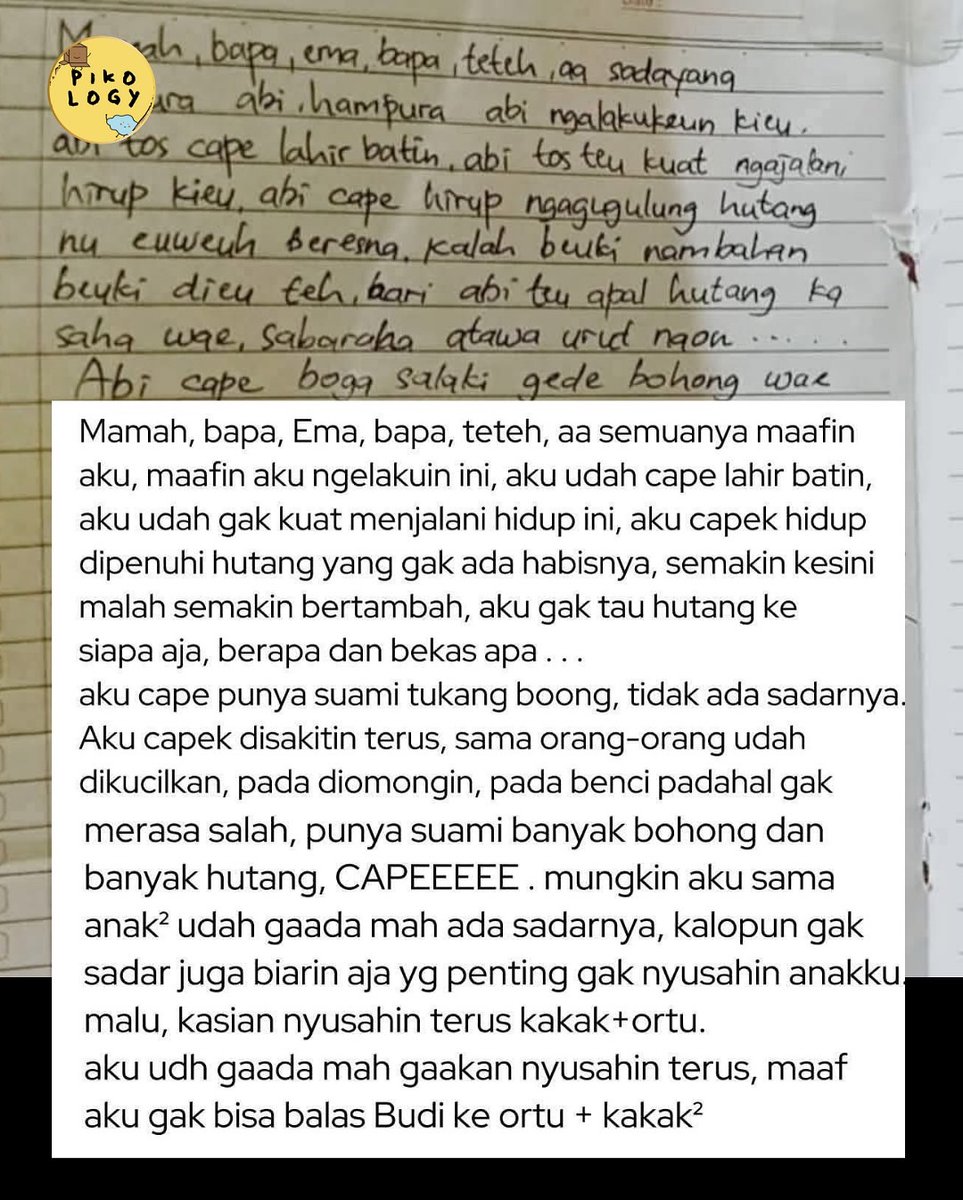 bapa, ema, bapa, teteh, aa sadayang
PIKO
LOGY
abi, hampura abi ngalakukeun kieu.
abi tos cape lahir batin, abi tos teu kuat ngajalani
hirup kieu, abi cape hirup ngagugulung hutang
nu euweuh beresna, kalah beuki nambahan
beuki dieu teh, bari abi teu apal hutang ka
saha wae, sabaraha atawa urut naon ......
Abi cape boga salaki gede bohong wae
Mamah, bapa, Ema, bapa, teteh, aa semuanya maafin
aku, maafin aku ngelakuin ini, aku udah cape lahir batin,
aku udah gak kuat menjalani hidup ini, aku capek hidup
dipenuhi hutang yang gak ada habisnya, semakin kesini
malah semakin bertambah, aku gak tau hutang ke
siapa aja, berapa dan bekas apa . . .
aku cape punya suami tukang boong, tidak ada sadarnya.
Aku capek disakitin terus, sama orang-orang udah
dikucilkan, pada diomongin, pada benci padahal gak
merasa salah, punya suami banyak bohong dan
banyak hutang, CAPEEEEE . mungkin aku sama
anak² udah gaada mah ada sadarnya, kalopun gak
sadar juga biarin aja yg penting gak nyusahin anakku.
malu, kasian nyusahin terus kakak+ortu.
aku udh gaada mah gaakan nyusahin terus, maaf
aku gak bisa balas Budi ke ortu + kakak²